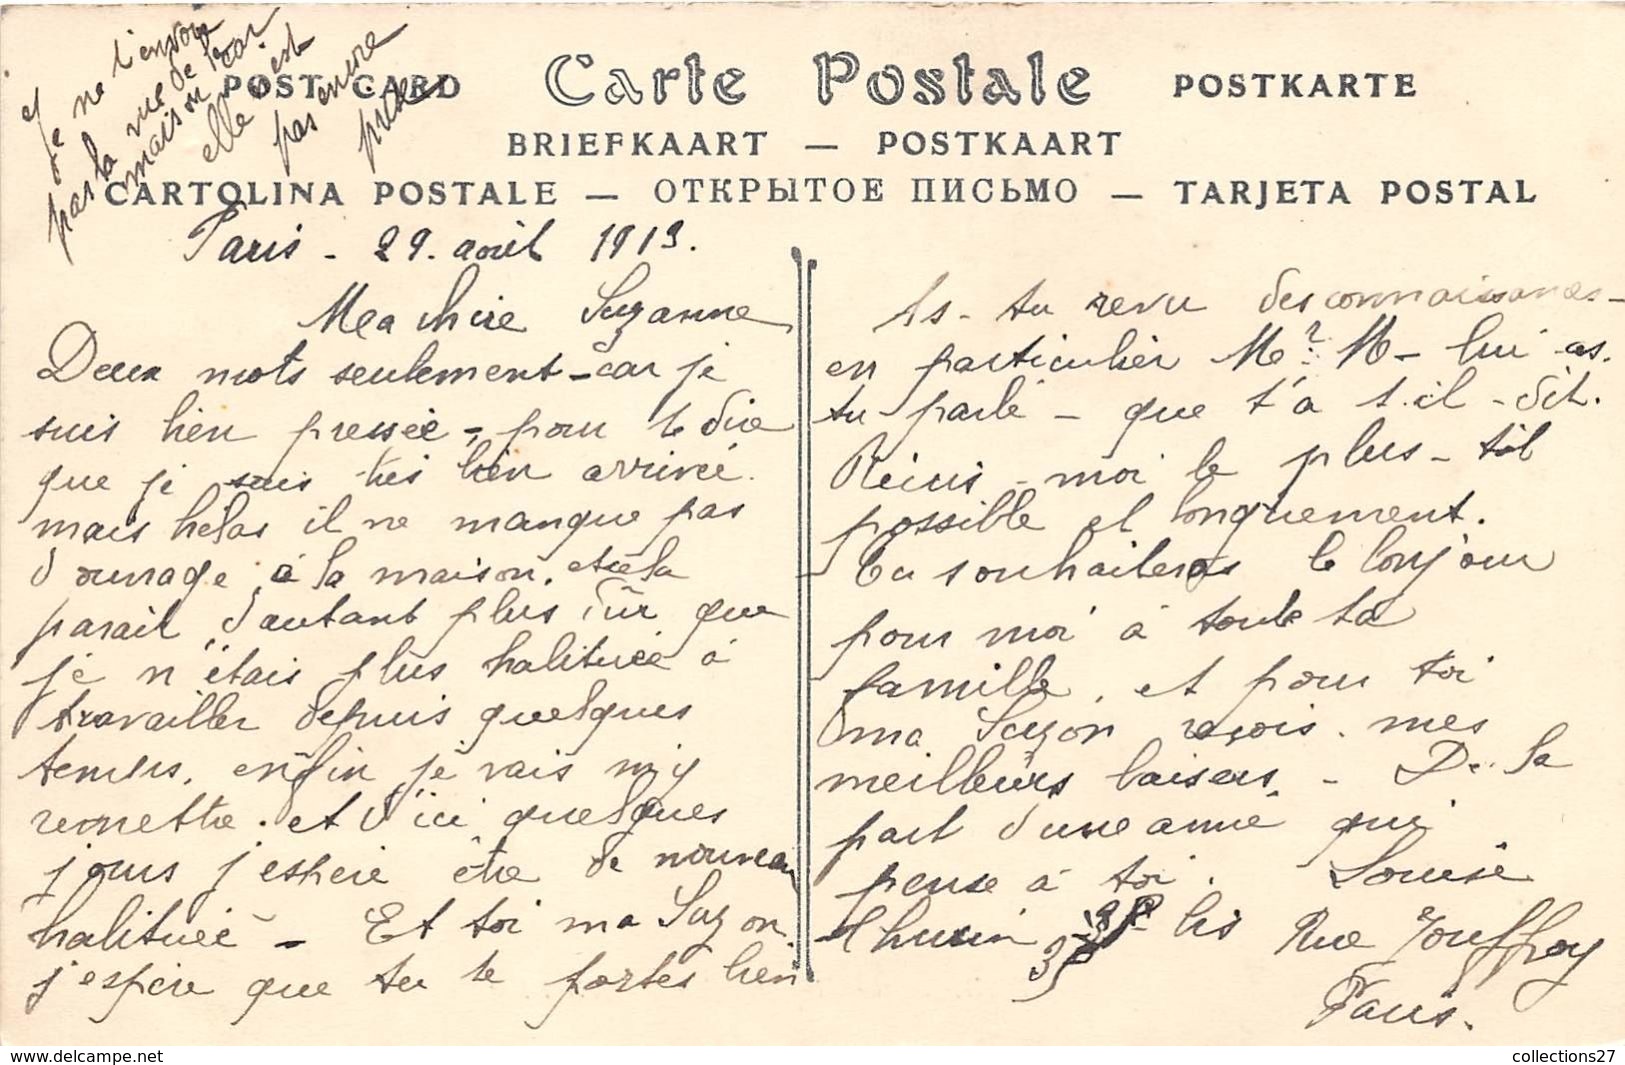 et
je ne t'envoie
pas la vue de la
maison car
elle n'est
pas encore
prête
POST CARD Carte Postale POSTKARTE
BRIEFKAART — POSTKAART
CARTOLINA POSTALE — ОТКРЫТОЕ ПИСЬМО — TARJETA POSTAL
Paris - 29. août 1913.
Ma chère Suzanne
Deux mots seulement - car je
suis bien pressée - pour te dire
que je suis très bien arrivée.
mais hélas il ne manque pas
d'ouvrage à la maison. et cela
parait d'autant plus dûr que
je n'étais plus habituée à
travailler depuis quelques
temps. enfin je vais m'y
remettre. et d'ici quelques
jours j'espère être de nouveau
habituée - Et toi ma Suzon.
j'espère que tu te portes bien
As-tu revu des connaissances -
en particulier Mr. M - lui as.
tu parlé - que t'a t.il - dit.
Ecris - moi le plus - tôt
possible et longuement.
Tu souhaiteras le bonjour
pour moi à toute ta
famille. et pour toi
ma Suzon reçois mes
meilleurs baisers. - De la
part d'une amie qui
pense à toi. Louise
Thurin 35 bis Rue Jouffroy
Paris.
www.delcampe.net
collections27